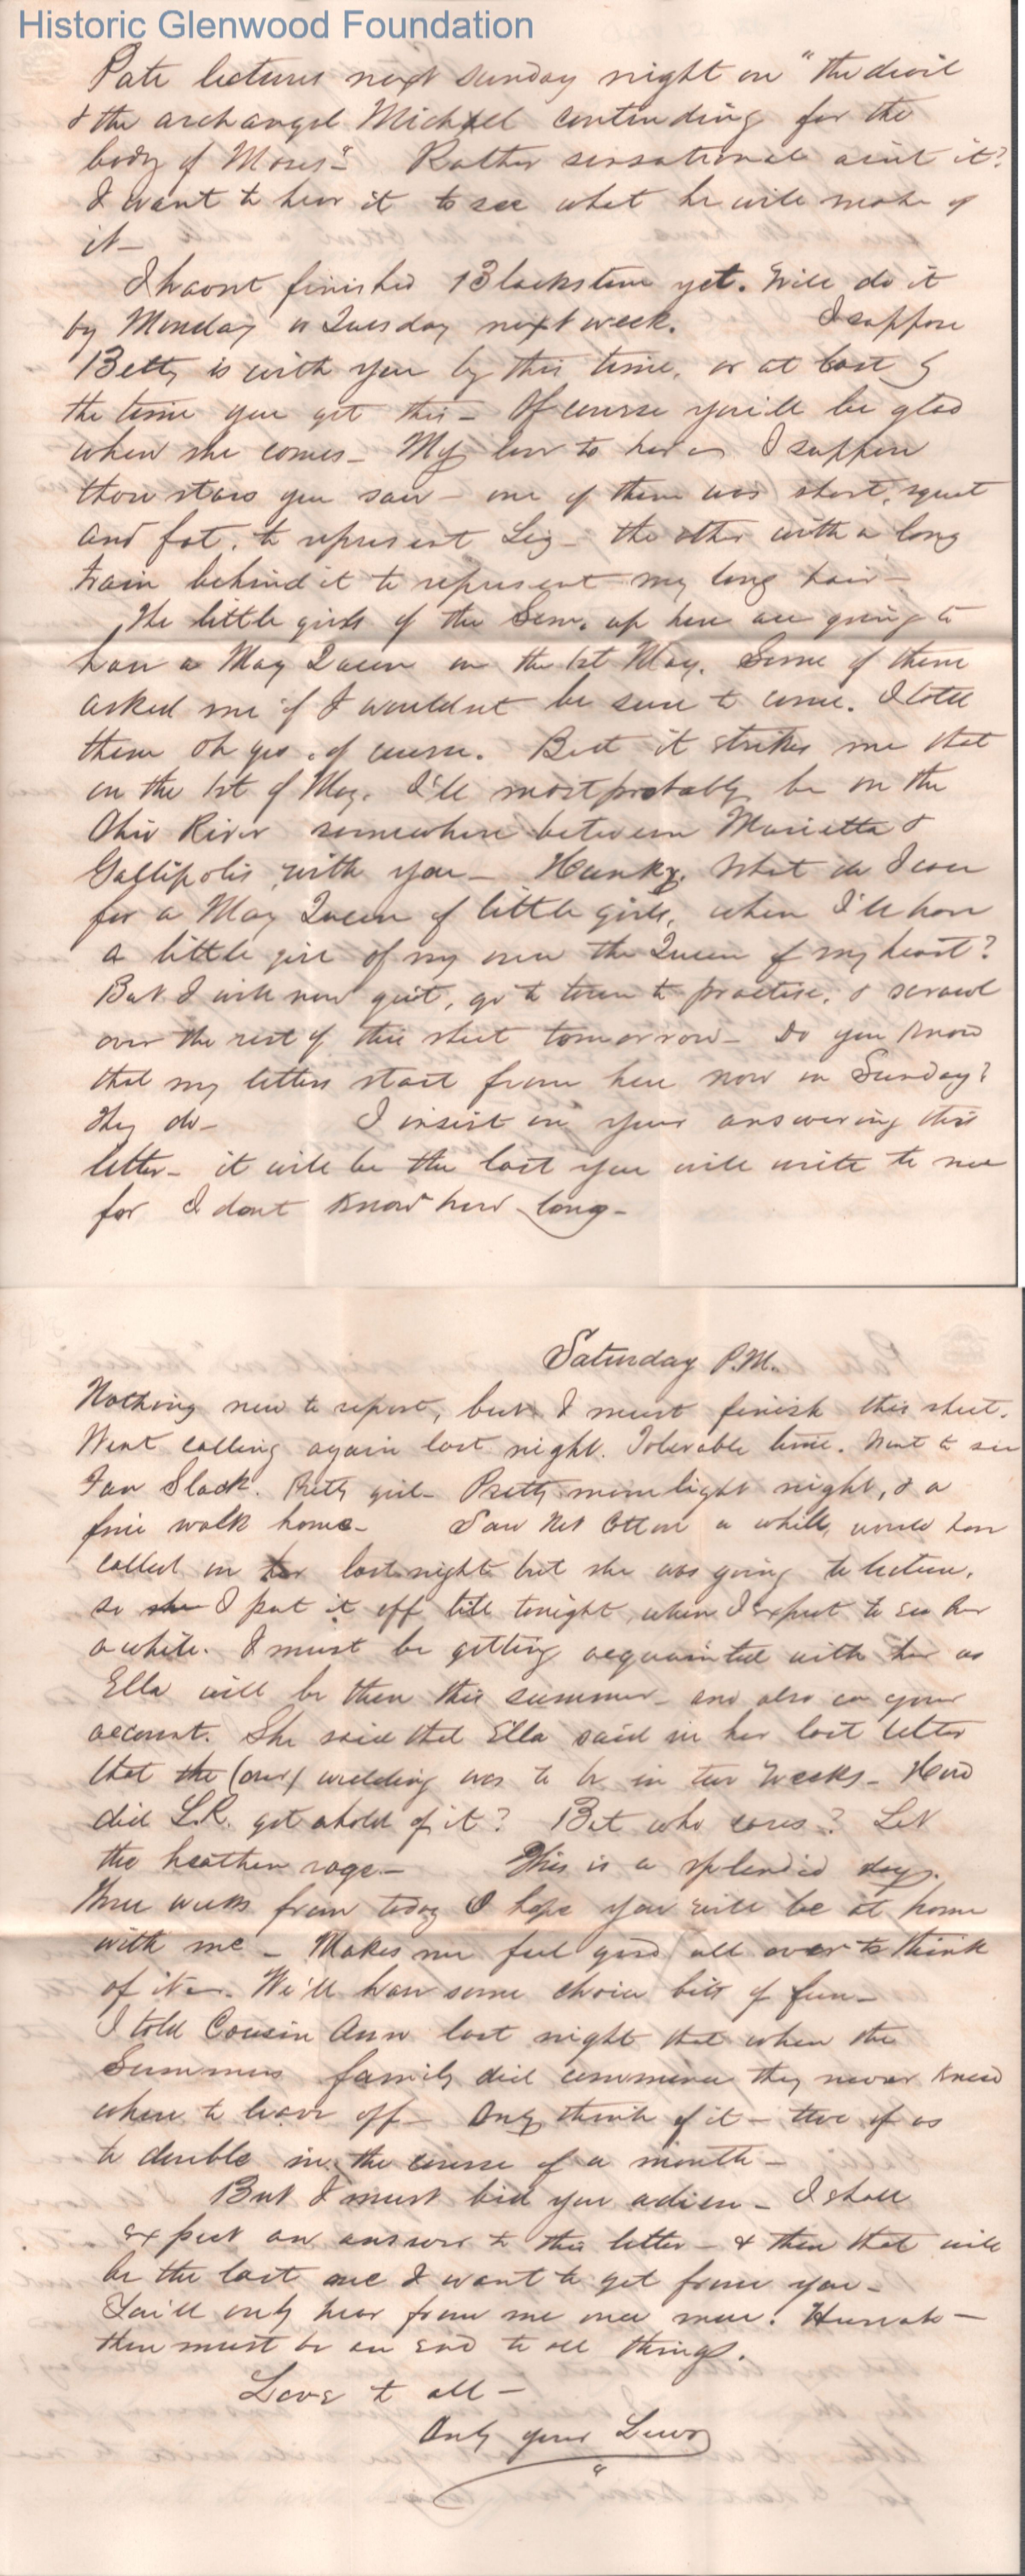 Historic Glenwood Foundation
Pate lectures next Sunday night on "the devil
& the archangel Michael contending for the
body of Moses"- Rather sensational aint it?
I want to hear it to see what he will make of
it-
I havent finished Blackstone yet. Will do it
by Monday or Tuesday next week. I suppose
Betty is with you by this time, or at last by
the time you get this- Of course you'll be glad
when she comes- My love to her- I suppose
those stars you saw- one of them was short, squat
and fat, to represent Lig- the other with a long
train behind it to represent my long hair-
The little girls of the Sem. up here are going to
have a May Queen on the 1st May. Some of them
asked me if I wouldnt be sure to come. I told
them oh yes, of course. But it strikes me that
on the 1st of May, I'll most probably be on the
Ohio River somewhere between Marietta &
Gallipolis, with you- What do I care
for a May Queen of little girls, when I'll have
a little girl of my own the Queen of my heart?
But I will now quit, go to town to practise, & scrawl
over the rest of this sheet tomorrow- Do you know
that my letters start from here now on Sunday?
They do- I insist on your answering this
letter- it will be the last you will write to me
for I dont know how long-
Saturday P.M.
Nothing new to report, but I must finish this sheet.
Went calling again last night. Tolerable time. Went to see
Fan Slack. Pretty girl- Pretty moonlight night, & a
fine walk home- Saw Net Cotton a while, would have
called on her last night but she was going to lecture,
so she I put it off till tonight, when I expect to see her
awhile. I must be getting acquainted with her as
Ella will be there this summer- and also on your
account. She said that Ella said in her last letter
that the (our) wedding was to be in two weeks- How
did L.R. get ahold of it? But who cares? Let
the heathen rage- This is a splendid day.
Three weeks from today I hope you will be at home
with me- Makes me feel good all over to think
of it-. We'll have some choice bits of fun-
I told Cousin Ann last night that when the
Summers family did commence they never knew
where to leave off- Only think of it- two of us
to double in the course of a month-
But I must bid you adieu- I shall
expect an answer to this letter- & then that will
be the last one I want to get from you-
You'll only hear from me once more! Hurrah-
there must be an end to all things.
Love to all-
Only your Lewis